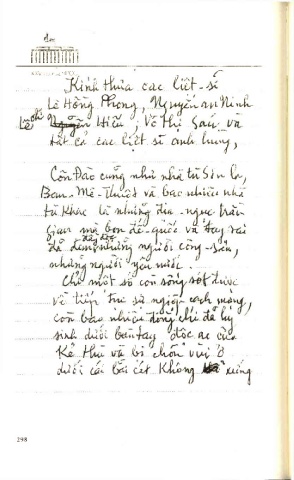 Kính thưa các liệt-sĩ
Lê Hồng Phong, Nguyễn an Ninh
Lê chí Hiếu, Võ Thị Sáu và
tất cả các liệt sĩ anh hùng,
Côn Đảo cũng như nhà tù Sơn la,
Ban-Mê-Thuột và bao nhiêu nhà
tù khác là những địa-ngục trần
gian mà bọn đế-quốc và tay sai
đã đem đày đọa những người cộng-sản,
những người yêu nước.
Chỉ một số còn sống sót được
về tiếp tục sự nghiệp cách mạng,
còn bao nhiêu đồng chí đã hy
sinh dưới bàn tay độc ác của
Kẻ thù và bị chôn vùi ở
dưới cái bãi cát không xiềng
298